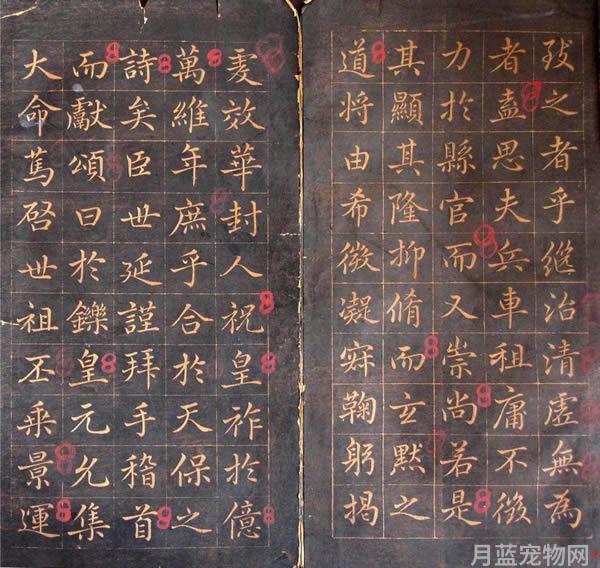 致之者乎繼治清虛無為
者盍思夫兵車租庸不徵
力於縣官而又崇尚若是
其顯其隆抑脩而玄默之
道將由希微凝寂鞠躬揭
虔效華封人祝皇祚於億
萬維年庶乎合於天保之
詩矣臣世延謹拜手稽首
而獻頌曰於鑠皇元允集
大命篤啓世祖丕乘景運
月蓝宠物网